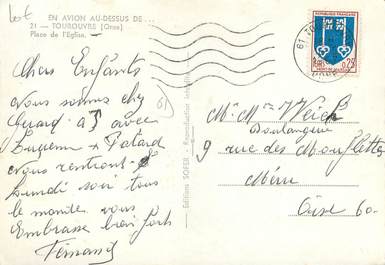 Lot
EN AVION AU-DESSUS DE...
21 — TOUROUVRE (Orne)
Place de l'Eglise.
Chers Enfants
nous sommes chez
Gérard avec
Patard
nous rentrons
Lundi soir tous
le monde vous
Embrasse bien fort
Fernand
61
Editions SOFER - Reproduction interdite
REPUBLIQUE FRANÇAISE
0,25
61 TO
ORNE
Mr Mme Weich
Boulangerie
9 rue des Mouflettes
Méru
Oise 60.